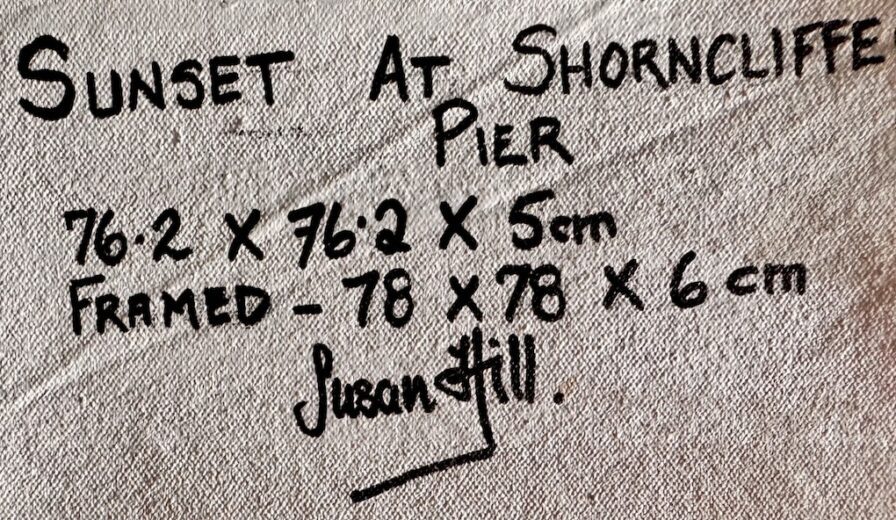 SUNSET AT SHORNCLIFFE
PIER
76.2 X 76.2 X 5cm
FRAMED - 78 X 78 X 6 cm
Susan Hill.